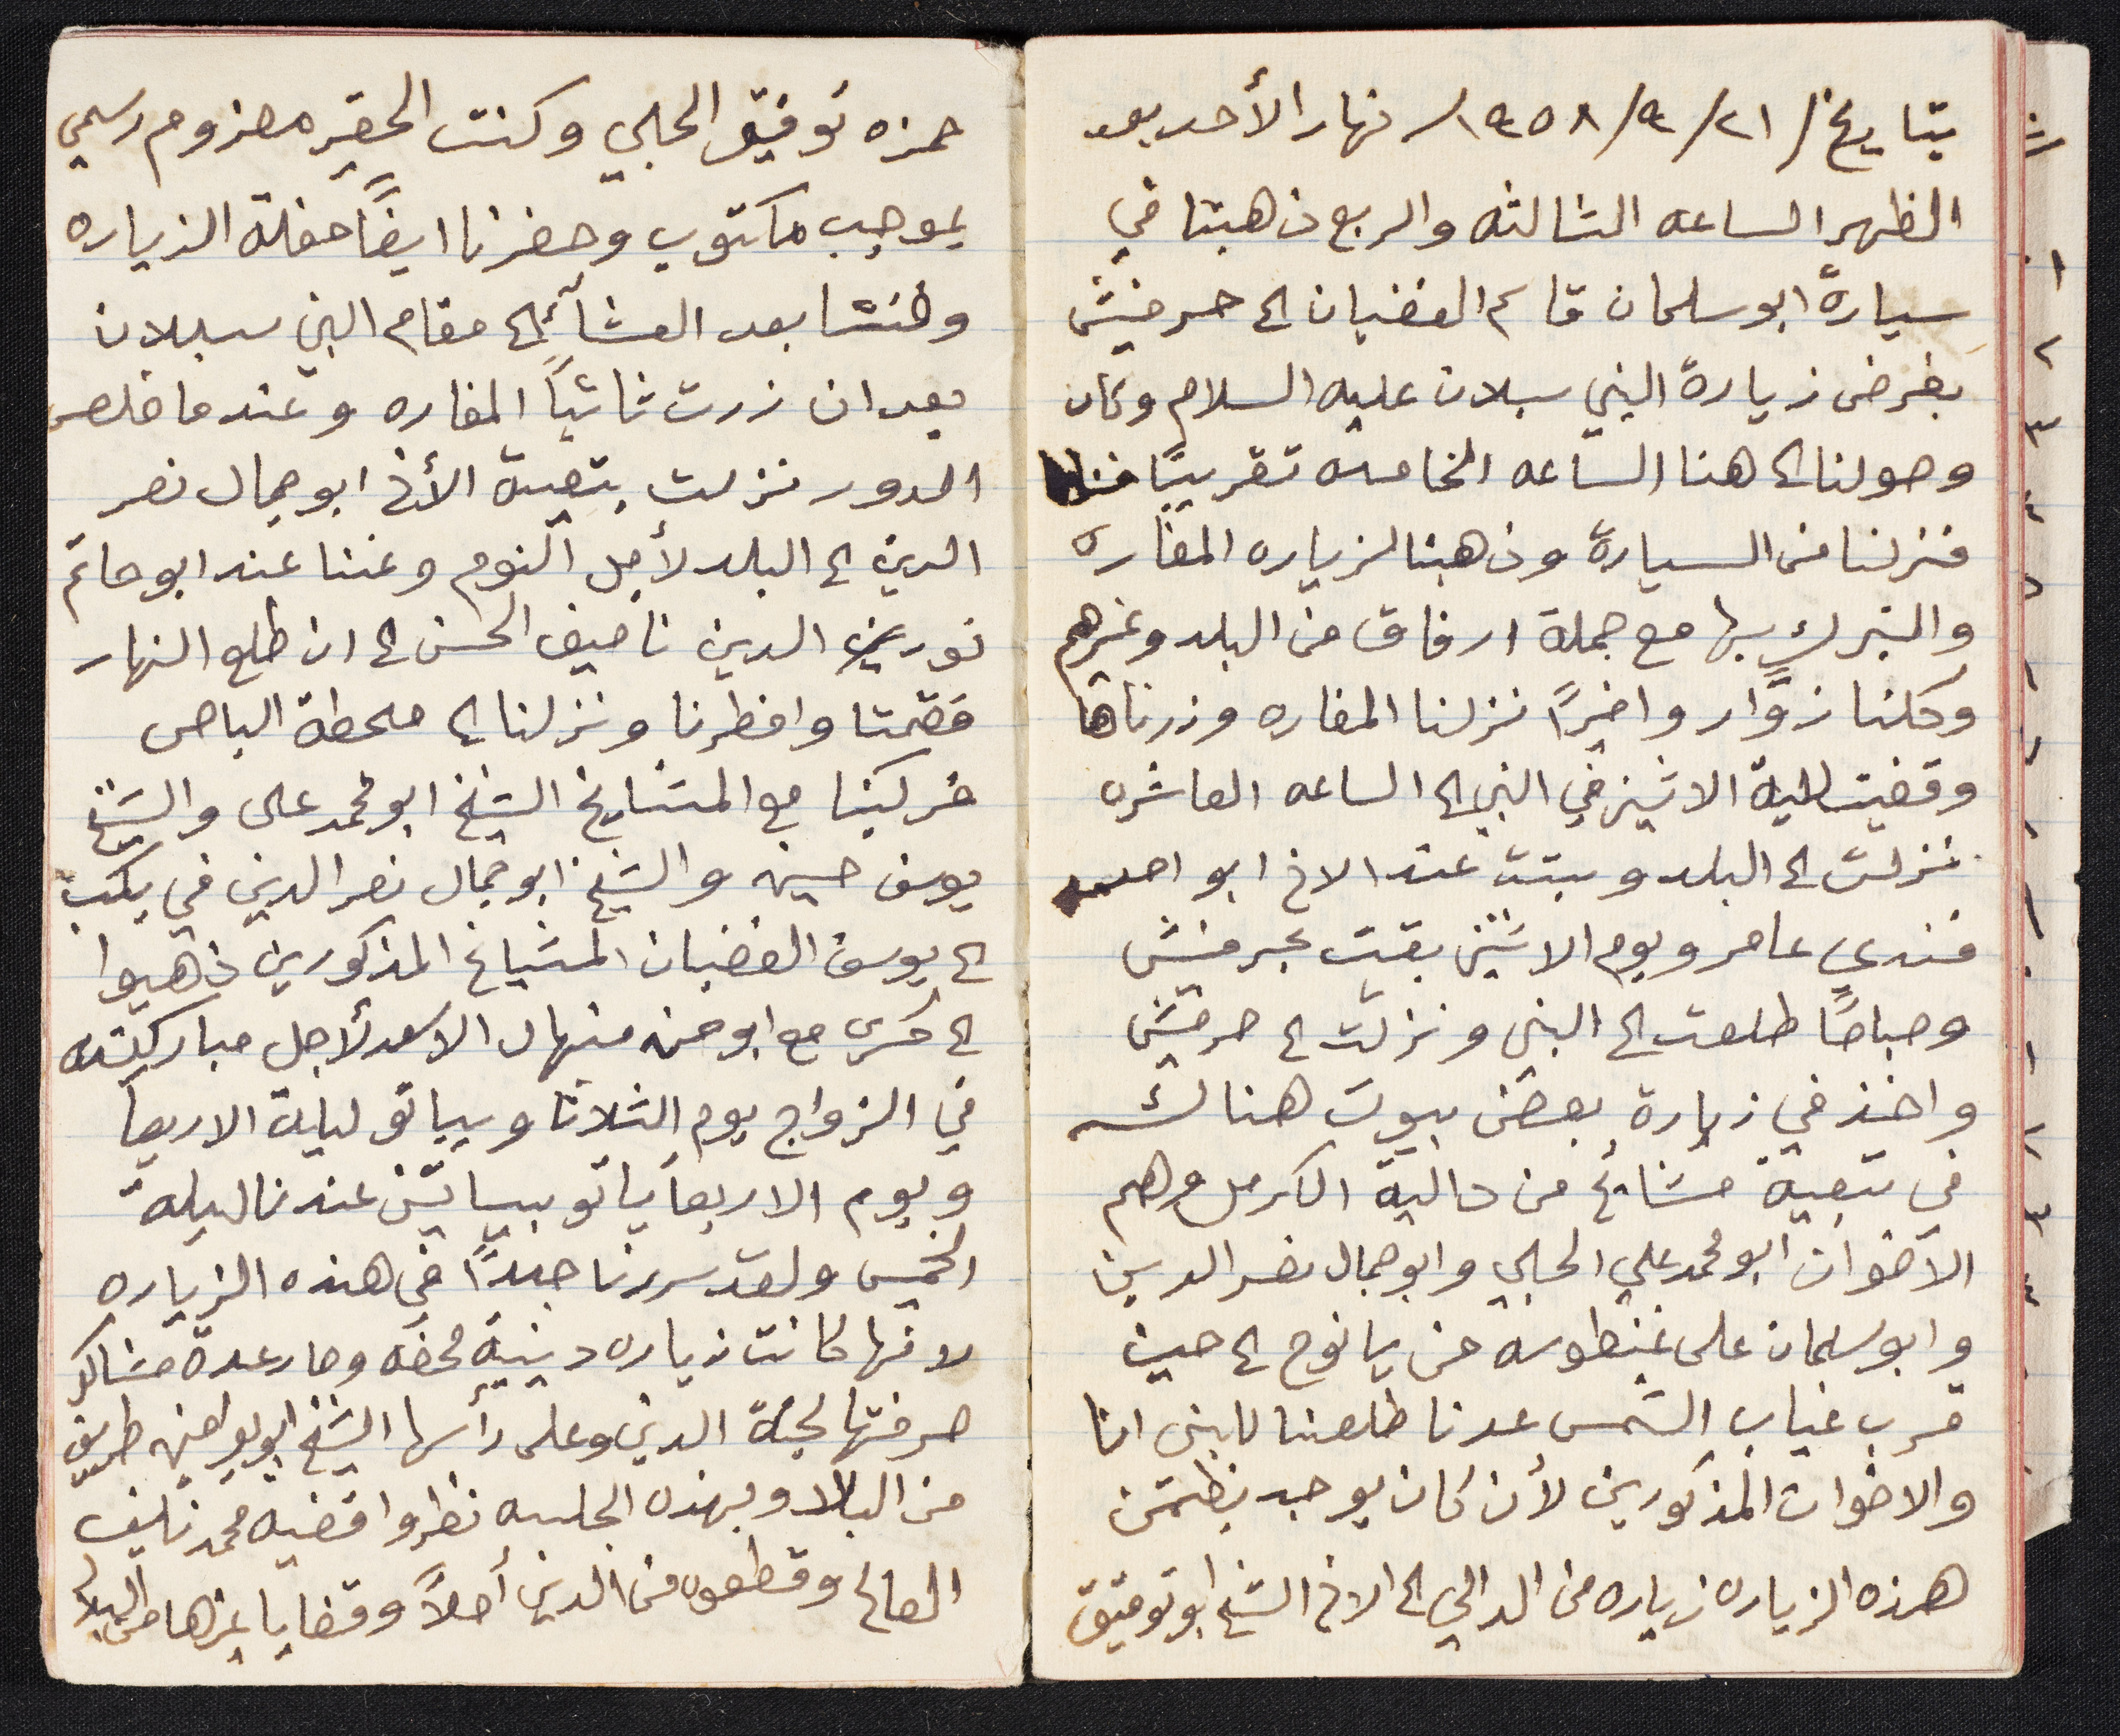 بتاريخ /٢١/٩/١٩٥٨/ نهار الأحد بعد
الظهر الساعه الثالثه والربع ذهبتا في
سيارة ابو سلمان قاسم الغضبان الى حرفيش
بغرض زيارة النبي سبلان عليه السلام وكان
وصولنا الى هنا الساعه الخامسه تقريبًا
فنزلنا من السيارة وذهبنا لزياره المغاره
والتبرك بها مع جملة ارفاق من البلد وغيرهم
وكلنا زوّار واخيرًا نزلنا المغاره وزرناها
وقضيت ليلة الاثنين في النبي الى الساعه العاشره
نزلت الى البلد وبتت عند الاخ ابو احمد
فندي عامر ويوم الاثنين بقيت بحرفيش
وصباحًا طلعت الى النبي ونزلت الى حرفيش
واخذ في زيارة بعض بيوت هنالك
في بتعية مشائخ من دالية الكرمل وهم
الاخوان ابو محمد علي الحلبي وابو جمال نصر الدين
وابو سلمان علي غنطوسه من يانوح الى حين
قرب غياب الشمس عدنا طلعنا للنبي انا
والاخوان المذكورين لأن كان يوجد بظمن
هذه الزياره زياره من الدالي الى الاخ الشيخ ابو توفيق
حمزه توفيق الحلبي وكنت الحقير معزوم رسمي
بموجب مكتوب وحضرنا ايضًا حفلة الزياره
بعد العشآء الى مقام النبي سبلان
بعد ان زرت ثانيًا المغاره وعندما خلص
الدور نزلت بتعية الأخ ابو جمال نصر
الدين الى البلد لأجل النوم ونمنا عند ابو حاتم
نور الدين ناصيف الحسن الى ان طلع النهار
فقمنا وافطرنا ونزلنا الى محطة الباص
فركبنا مع المشايخ الشيخ ابو محمد علي والشيخ
يوسف حسين والشيخ ابو جمال نصر الدين في بكب
الى يوسف الغضبان المشيايخ المذكورين ذهبوا
الى كسرى مع ابو حسن منهال الاسعد لأجل مباركيته
في الزواج يوم الثلاثا ويباتو ليلة الاربعا
ويوم الاربعا ياتو بيباتين عندنا ليلة
الخميس ولقد سررنا جيدًا في هذه الزياره
لانها كانت زياره دينية محضه وصار عدة مشاكل
صرفتها لجنة الدين وعلى رأسها الشيخ ابو يوسف امين طريف
من البلاد وبهذه الجلسه نظروا قضيه محمد نايف
الصالح وقطعوه من الدين أصلاً وقضايا غيرها من البلاد